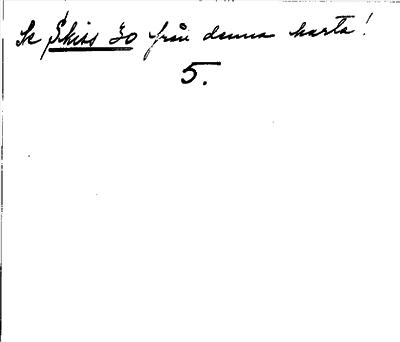 Se Skiss 30 från denna karta!
5.